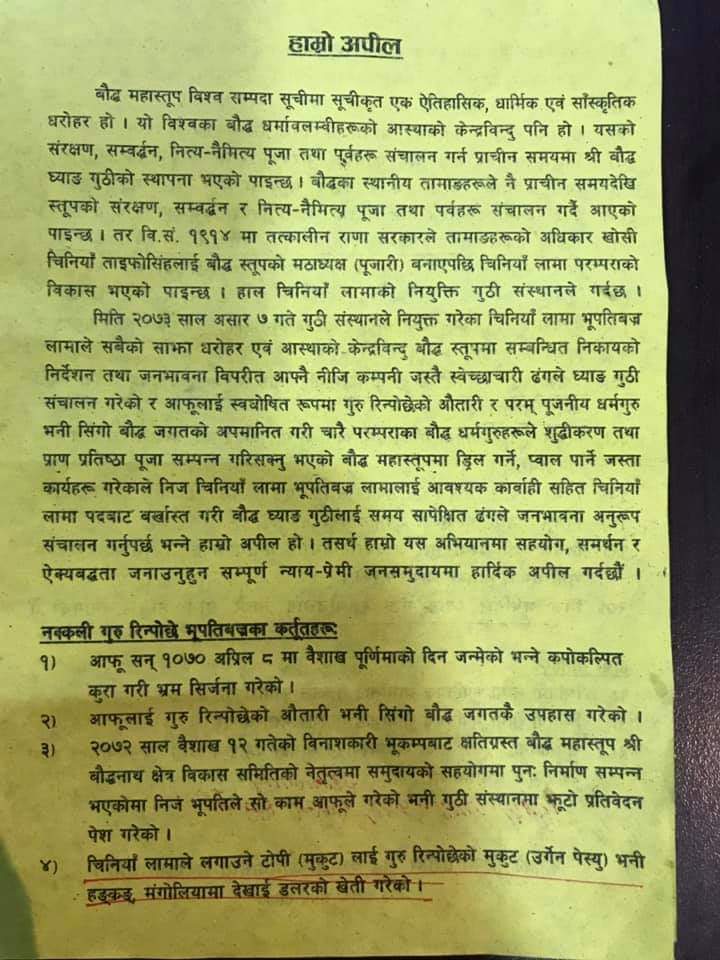 हाम्रो अपील
बौद्ध महास्तूप विश्व सम्पदा सूचीमा सूचीकृत एक ऐतिहासिक, धार्मिक एवं साँस्कृतिक
धरोहर हो । यो विश्वका बौद्ध धर्मावलम्बीहरूको आस्थाको केन्द्रविन्दु पनि हो । यसको
संरक्षण, सम्वर्द्धन, नित्य-नैमित्य पूजा तथा पूर्वहरू संचालन गर्न प्राचीन समयमा श्री बौद्ध
घ्याङ गुठीको स्थापना भएको पाइन्छ । बौद्धका स्थानीय तामाङहरूले नै प्राचीन समयदेखि
स्तूपको संरक्षण, सम्वर्द्धन र नित्य-नैमित्य पूजा तथा पर्वहरू संचालन गर्दै आएको
पाइन्छ । तर वि.सं. १९१४ मा तत्कालीन राणा सरकारले तामाङहरूको अधिकार खोसी
चिनियाँ ताइफोसिंहलाई बौद्ध स्तूपको मठाध्यक्ष (पूजारी) बनाएपछि चिनियाँ लामा परम्पराको
विकास भएको पाइन्छ । हाल चिनियाँ लामाको नियुक्ति गुठी संस्थानले गर्दछ ।
मिति २०७३ साल असार ७ गते गुठी संस्थानले नियुक्त गरेका चिनियाँ लामा भूपतिबज्र
लामाले सबैको साझा धरोहर एवं आस्थाको केन्द्रविन्दु बौद्ध स्तूपमा सम्बन्धित निकायको
निर्देशन तथा जनभावना विपरीत आफ्नै नीजि कम्पनी जस्तै स्वेच्छाचारी ढंगले घ्याङ गुठी
संचालन गरेको र आफूलाई स्वघोषित रूपमा गुरु रिन्पोछेको औतारी र परम् पूजनीय धर्मगुरु
भनी सिंगो बौद्ध जगतको अपमानित गरी चारै परम्पराका बौद्ध धर्मगुरुहरूले शुद्धीकरण तथा
प्राण प्रतिष्ठा पूजा सम्पन्न गरिसक्नु भएको बौद्ध महास्तूपमा ड्रिल गर्ने, प्वाल पार्ने जस्ता
कार्यहरू गरेकाले निज चिनियाँ लामा भूपतिबज्र लामालाई आवश्यक कार्वाही सहित चिनियाँ
लामा पदबाट बर्खास्त गरी बौद्ध घ्याङ गुठीलाई समय सापेक्षित ढंगले जनभावना अनुरूप
संचालन गर्नुपर्छ भन्ने हाम्रो अपील हो । तसर्थ हाम्रो यस अभियानमा सहयोग, समर्थन र
ऐक्यबद्धता जनाउनुहुन सम्पूर्ण न्याय-प्रेमी जनसमुदायमा हार्दिक अपील गर्दछौं ।
नक्कली गुरु रिन्पोछे भूपतिबज्रका कर्तूतहरू:
१) आफू सन् १०७० अप्रिल ८ मा वैशाख पूर्णिमाको दिन जन्मेको भन्ने कपोकल्पित
कुरा गरी भ्रम सिर्जना गरेको ।
२) आफूलाई गुरु रिन्पोछेको औतारी भनी सिंगो बौद्ध जगतकै उपहास गरेको ।
३) २०७२ साल वैशाख १२ गतेको विनाशकारी भूकम्पबाट क्षतिग्रस्त बौद्ध महास्तूप श्री
बौद्धनाथ क्षेत्र विकास समितिको नेतृत्वमा समुदायको सहयोगमा पुनः निर्माण सम्पन्न
भएकोमा निज भूपतिले सो काम आफूले गरेको भनी गुठी संस्थानमा झूटो प्रतिवेदन
पेश गरेको ।
४) चिनियाँ लामाले लगाउने टोपी (मुकुट) लाई गुरु रिन्पोछेको मुकुट (उर्गेन पेस्यु) भनी
हङकङ, मंगोलियामा देखाई डलरको खेती गरेको ।